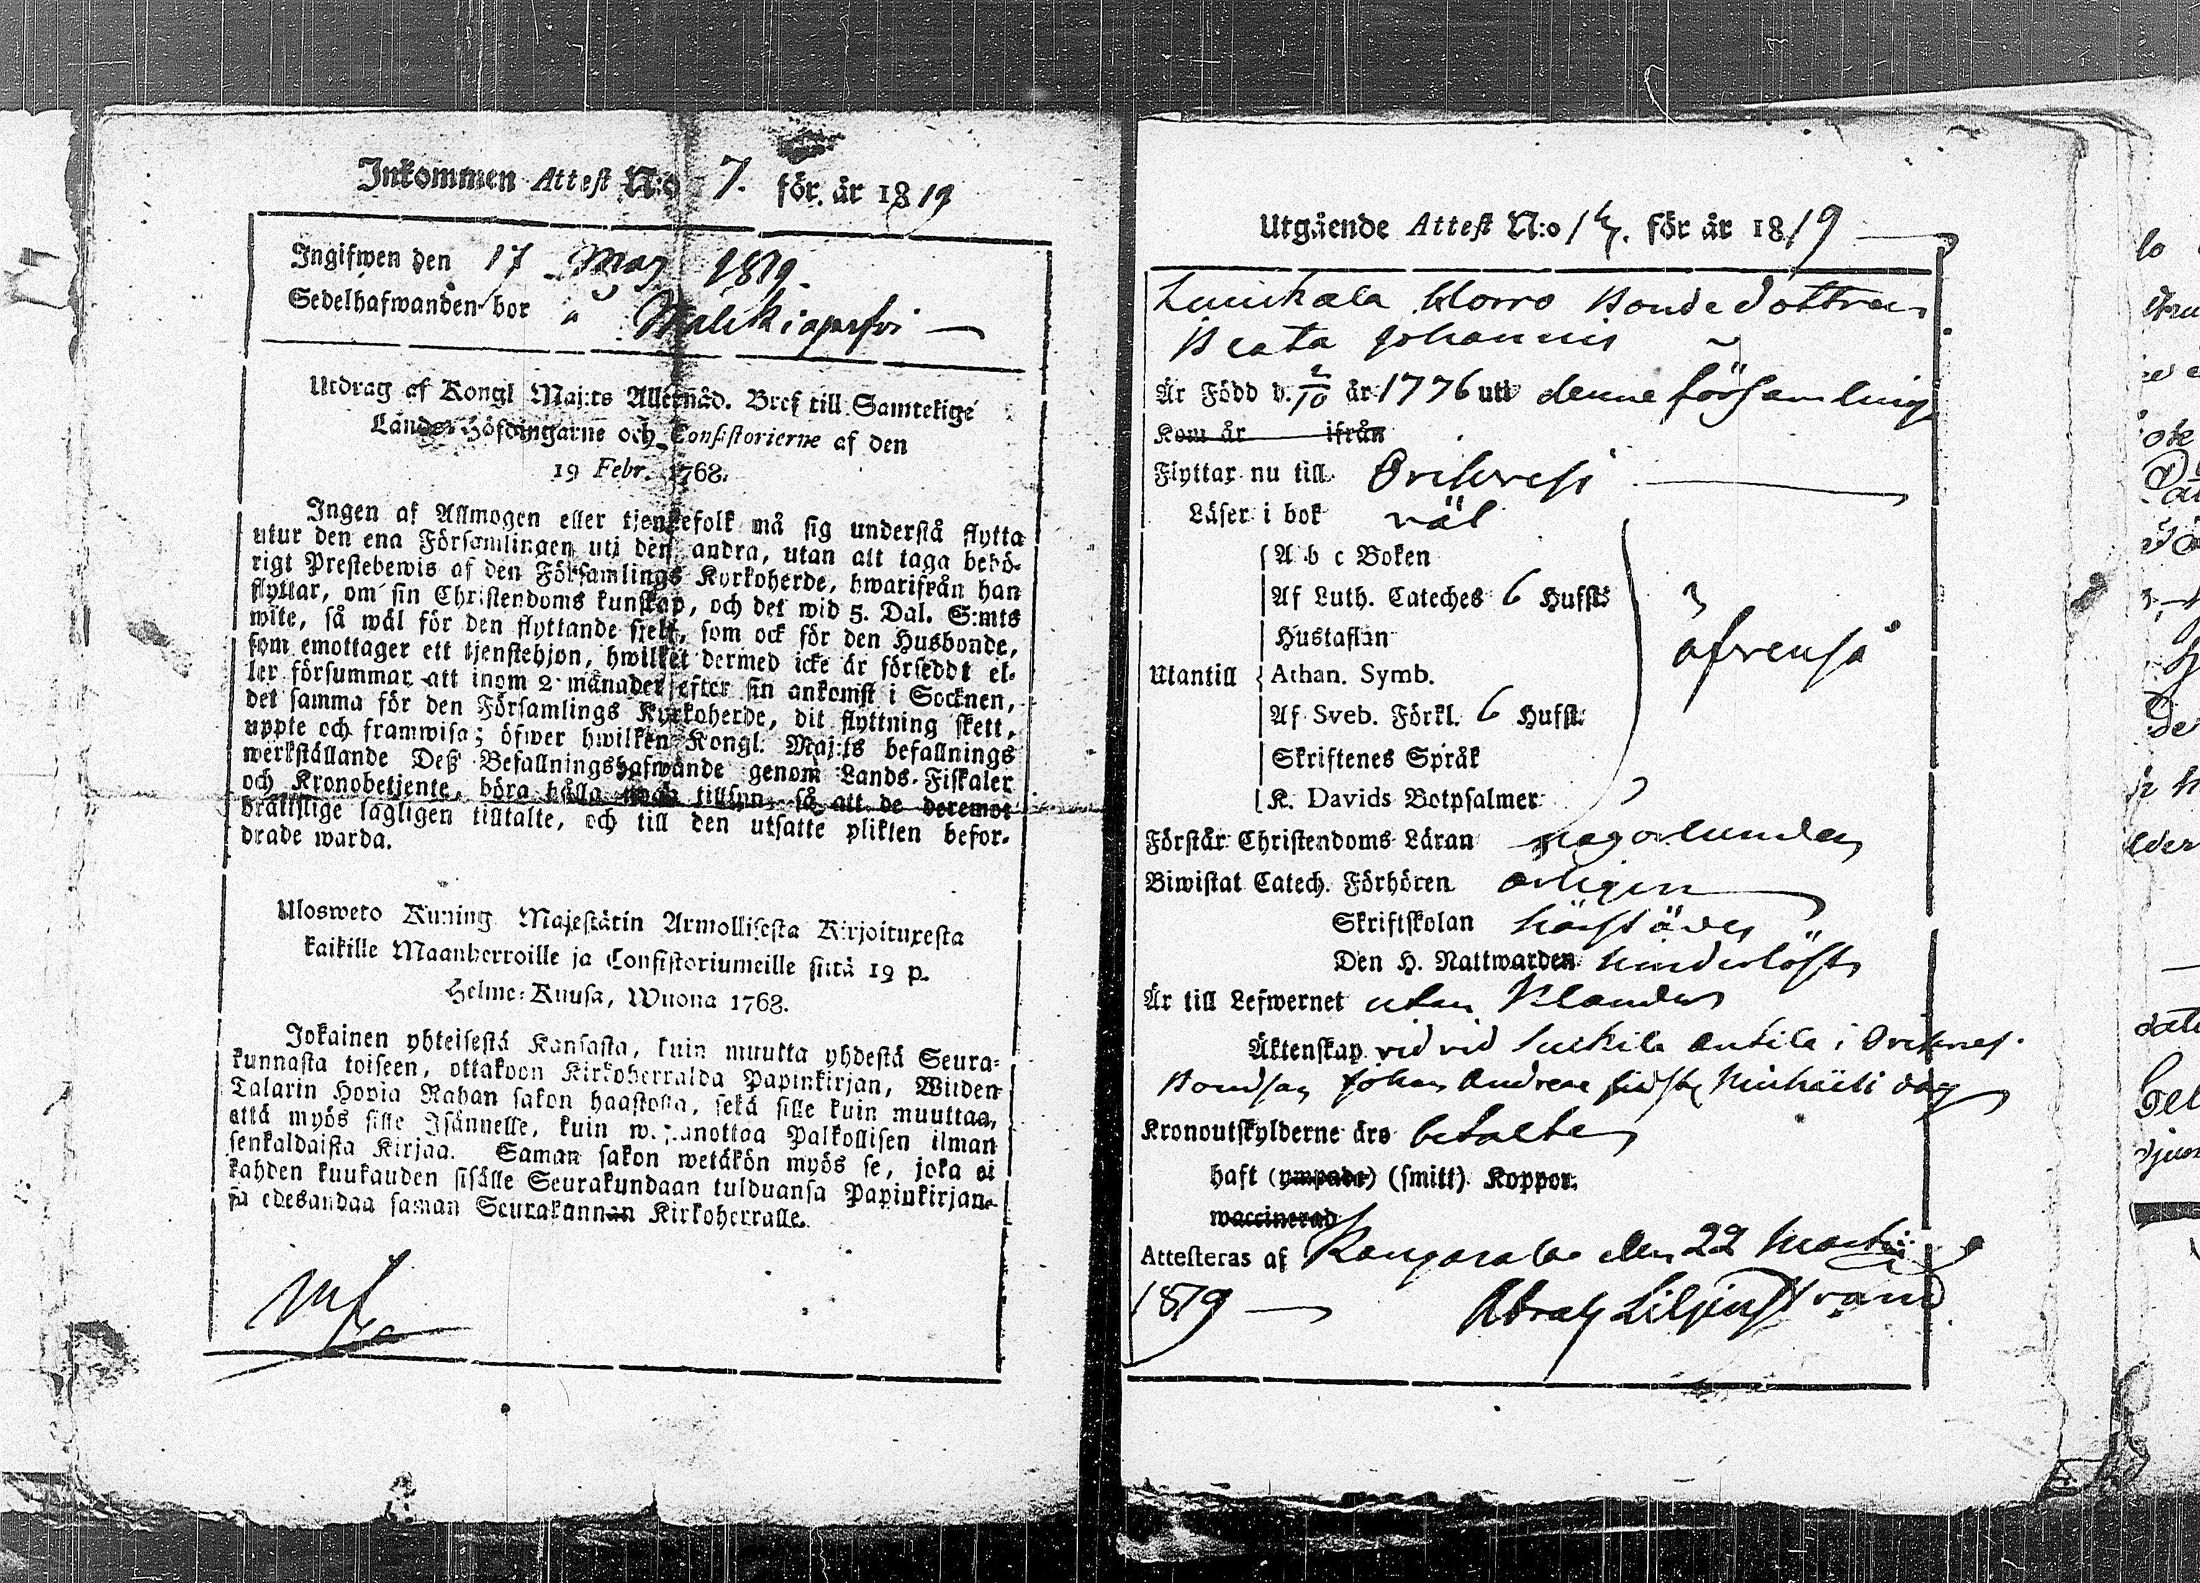 Inkommen Attest N:o 7. för år 1819
Ingifwen den 17 May 1819.
Sedelhafwanden bor å
Utdrag af Kongl Maj:ts Allernåd. Bref till Samtelige
Lands-Höfdingarne och Consistorierne af den
19 Febr. 1768.
Ingen af Allmogen eller tjenstefolk må sig understå flytta
utur den ena Församlingen uti den andra, utan att taga behö-
rigt Prestebewis af den Församlings Kyrkoherde, hwarifrån han
flyttar, om sin Christendoms kunskap, och det wid 5. Dal. S:mts
wite, så wäl för den flyttande sjelf, som ock för den Husbonde,
som emottager ett tjenstehjon, hwilket dermed icke är försedt el-
ler försummar att inom 2 månader efter sin ankomst i Socknen,
det samma för den Församlings Kyrkoherde, dit flyttning skett,
uppte och framwisa; öfwer hwilken Kongl. Maj:ts befallnings
werkställande Deß Befallningshafwande genom Lands-Fiskaler
och Kronobetjente, böra hålla noga tillsyn, så att de deremot
brättslige lagligen tilltalte, och till den utsatte plikten befor-
drade warda.
Ulosweto Kuning Majestätin Armollisesta Kirjoituxesta
kaikille Maanherroille ja Consistoriumeille siitä 19 p.
Helme-Kuusa, Wuona 1768.
Jokainen yhteisestä Kansasta, kuin muutta yhdestä Seura-
kunnasta toiseen, ottakoon Kirkoherralda Papinkirjan, Wiiden
Talarin Hopia Rahan sakon haastolla, sekä sille kuin muuttaa,
että myös sille Isännelle, kuin wastanottaa Palkollisen ilman
senkaldaista Kirjaa. Saman sakon wetäkön myös se, joka ei
kahden kuukauden sisälle Seurakundaan tulduansa Papinkirjan-
sa edesandaa saman Seurakunnan Kirkoherralle.
Utgående Attest N:o 14. för år 1819
Bondedottren
Beata Johannis
Är Född d. 2/10 år 1776 uti denne församling
Kom år ifrån
Flyttar nu till Orihvesi
Läser i bok väl
A b c Boken
Af Luth. Cateches 6 Hufst:
Hustaflan
Utantill Athan. Symb.
Af Sveb. Förkl. 6 Hufst:
Skriftenes Språk
K. Davids Botpsalmer
äfvenså
Förstår Christendoms Läran någorlunda
Biwistat Catech. Förhören årligen
Skriftskolan
Den H. Nattwarden
Är till Lefwernet utan Klander
Äktenskap
Bondson Johan Andersson sidste Michaeli dag
Kronoutskylderne äro betalte
haft (ympade) (smitt) Koppor.
waccinerad
Attesteras af Kangasala den 22 Martii
1819 Abrah Liljenstrand